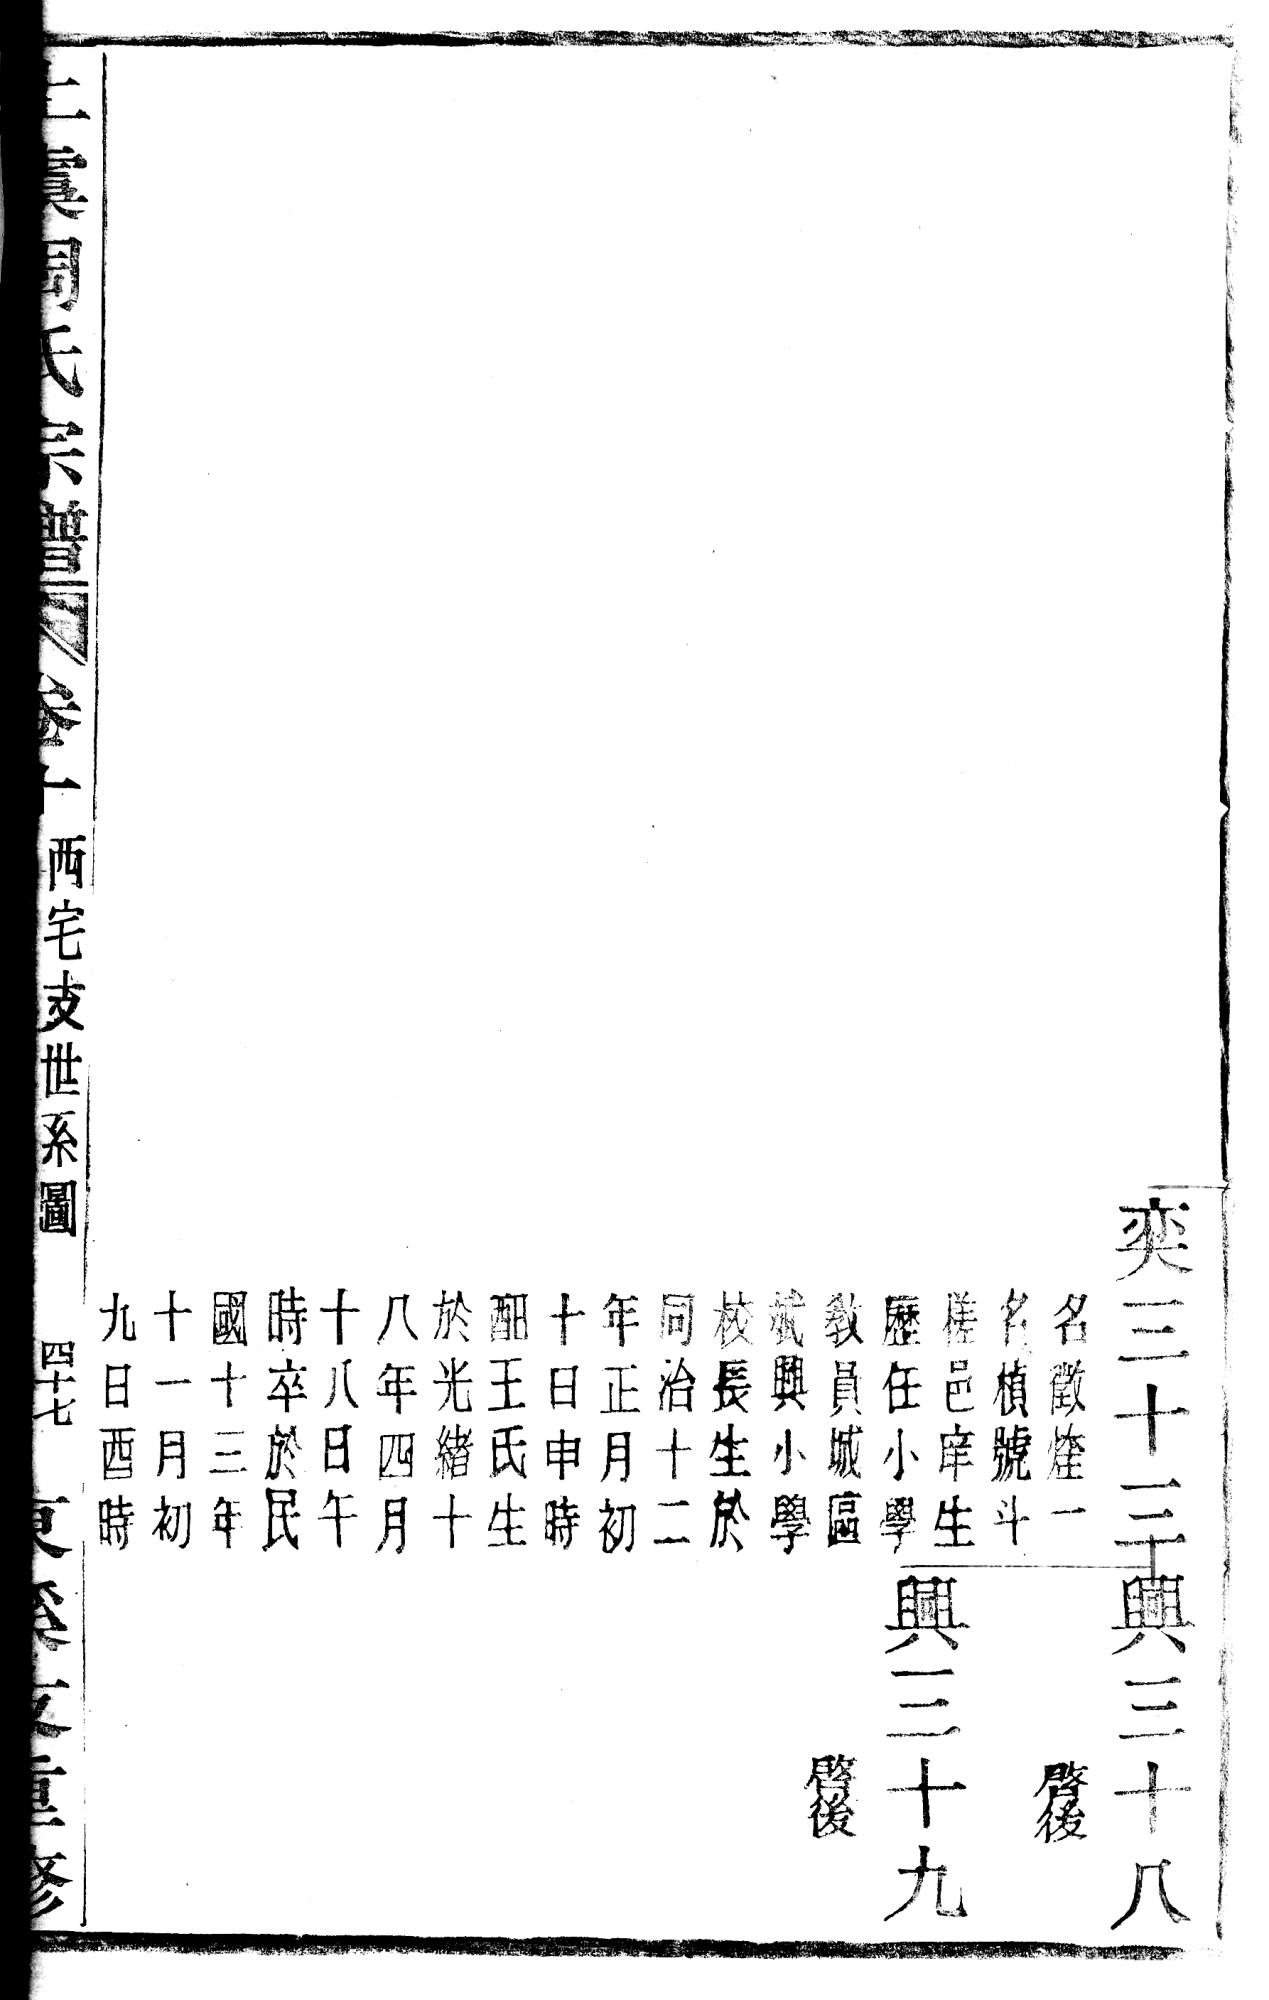 奕三十三
名徵煃一
名楨號斗
槎邑庠生
歷任小學
教員城區
斌興小學
校長生於
同治十二
年正月初
十日申時
配王氏生
於光緒十
八年四月
十八日午
時卒於民
國十三年
十一月初
九日酉時
興三十八
啓後
興三十九
啓後
上虞周氏宗譜
卷十
西宅支世系圖
四十七
重修